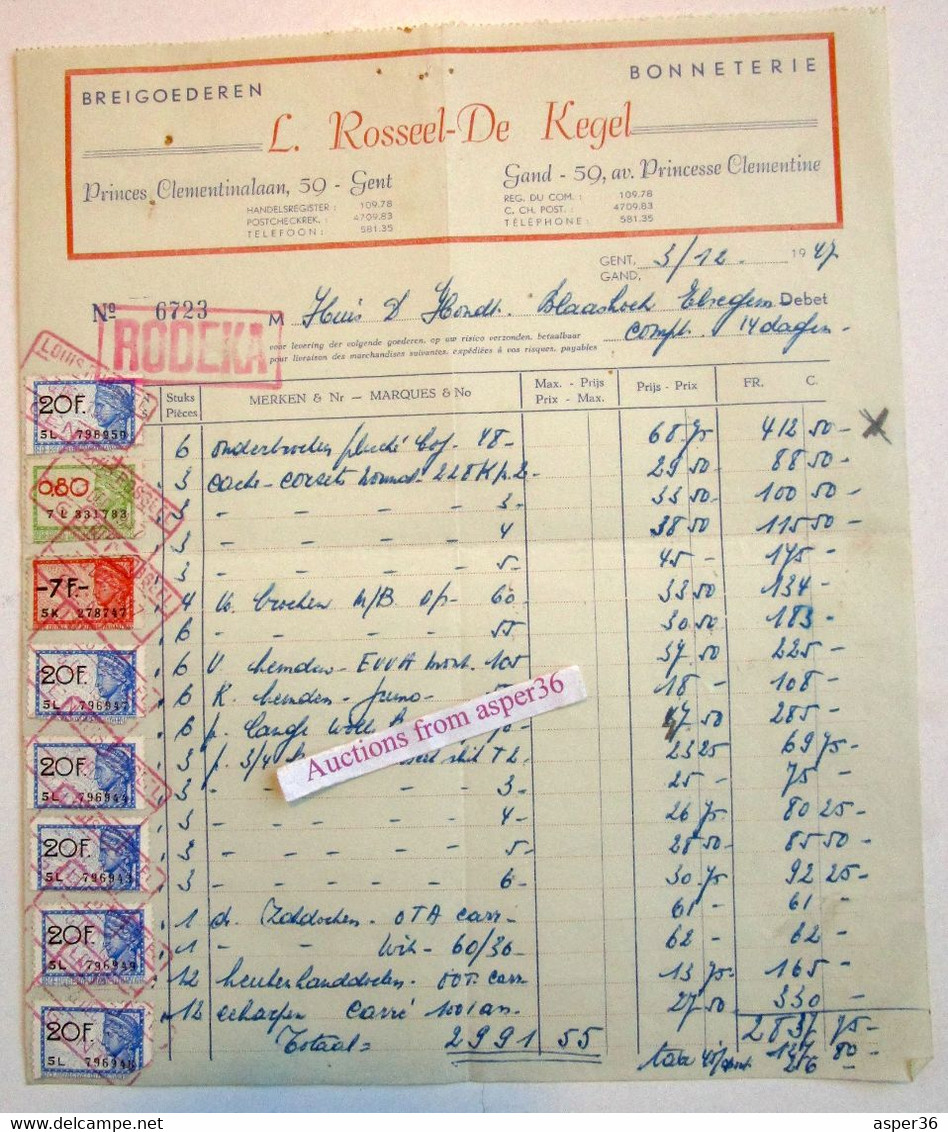 BREIGOEDEREN
BONNETERIE
L. Rosseel-De Kegel
Princes Clementinalaan, 59 - Gent
Gand - 59, av. Princesse Clementine
HANDELSREGISTER : 109.78
POSTCHECKREK. : 4709.83
TELEFOON : 581.35
REG. DU COM. : 109.78
C. CH. POST. : 4709.83
TÉLÉPHONE : 581.35
GENT,
GAND, 3/12 - 1947
Nº 6723
M Huis D'Hondt. Blaashoek Elsegem Debet
voor levering der volgende goederen, op uw risico verzonden, betaalbaar
pour livraison des marchandises suivantes, expédiées à vos risques, payables
compt. 14 dagen -
RODEKA
Stuks
Pièces
MERKEN & Nr — MARQUES & No
Max. - Prijs
Prix - Max.
Prijs - Prix
FR. C.
6 onderbroeken pluché 48 - 68.75 412 50 -
3 cache-corsets 228 2 - 29 50 88 50 -
3 - - - 3 - 33 50 - 100 50 -
3 - - - 4 38 50 115 50 -
3 - - - 5 - 45 - 175 -
4 broeken M/B 60 33 50 134 -
6 - - - 55 30 50 - 183 -
6 V. hemden - EVVA 105 37 50 225 -
6 K. hemden - 18 - 108 -
6 p. Lange 47 50 285 -
3 p. 3/4 T2 23 25 69 75 -
3 - 3 - 25 - 75 -
3 - - - - - 4 - 26 75 80 25 -
3 - - - - - 5 - 28 50 - 85 50 -
3 - - - - - 6 - 30 75 - 92 25 -
1 d. Zakdoeken - OTA carr - 61 - 61 -
1 - - Wit - 60/36 - 62 - 62 -
12 keukenhanddoeken - carr 13 75 - 165 -
12 echarpen carré 27 50 330 -
2837 75 -
Totaal = 2991 55
taxe
20F.
5L 798959
0.80
7 L 331783
-7 F.-
5K 278747
20F.
5L 796947
20F.
5L 796944
20F.
5L 796943
20F.
5L 796949
20F.
5L
Auctions from asper36
asper36